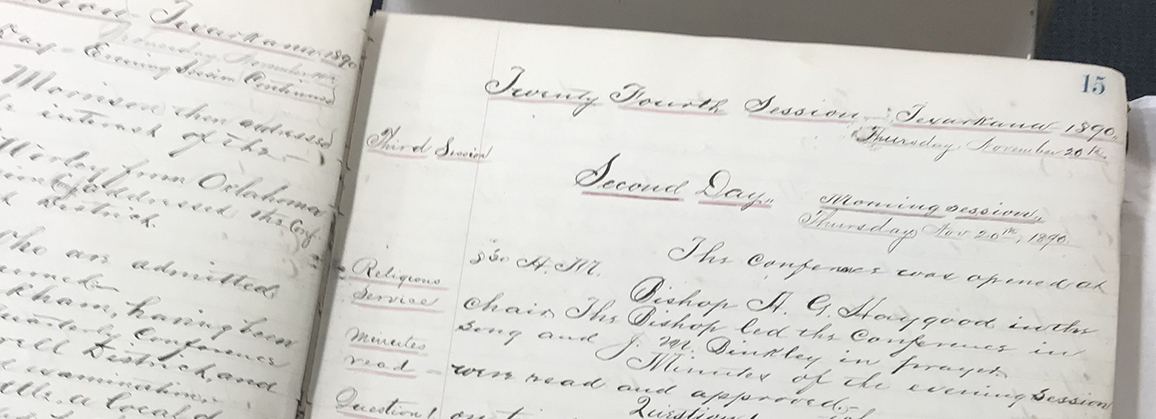 Texarkana 1890
Day - Evening Session Continued
Morrison then addressed
interest of the
from Oklahoma
addressed the Conf
District.
who are admitted
having been
Quarterly Conference
District, and
examination
a local d
15
Twenty Fourth Session, Texarkana 1890.
Thursday, November 20th.
Third Session
Second Day.
Morning Session,
Thursday Nov 20th, 1890.
The conference was opened at
8 30 A.M.
Bishop A. G. Haygood in the
Religious
Service
chair. The Bishop led the Conference in
song and J. M. Binkley in prayer.
Minutes of the evening session
Minutes
read -
were read and approved.
Question 1
Question 1